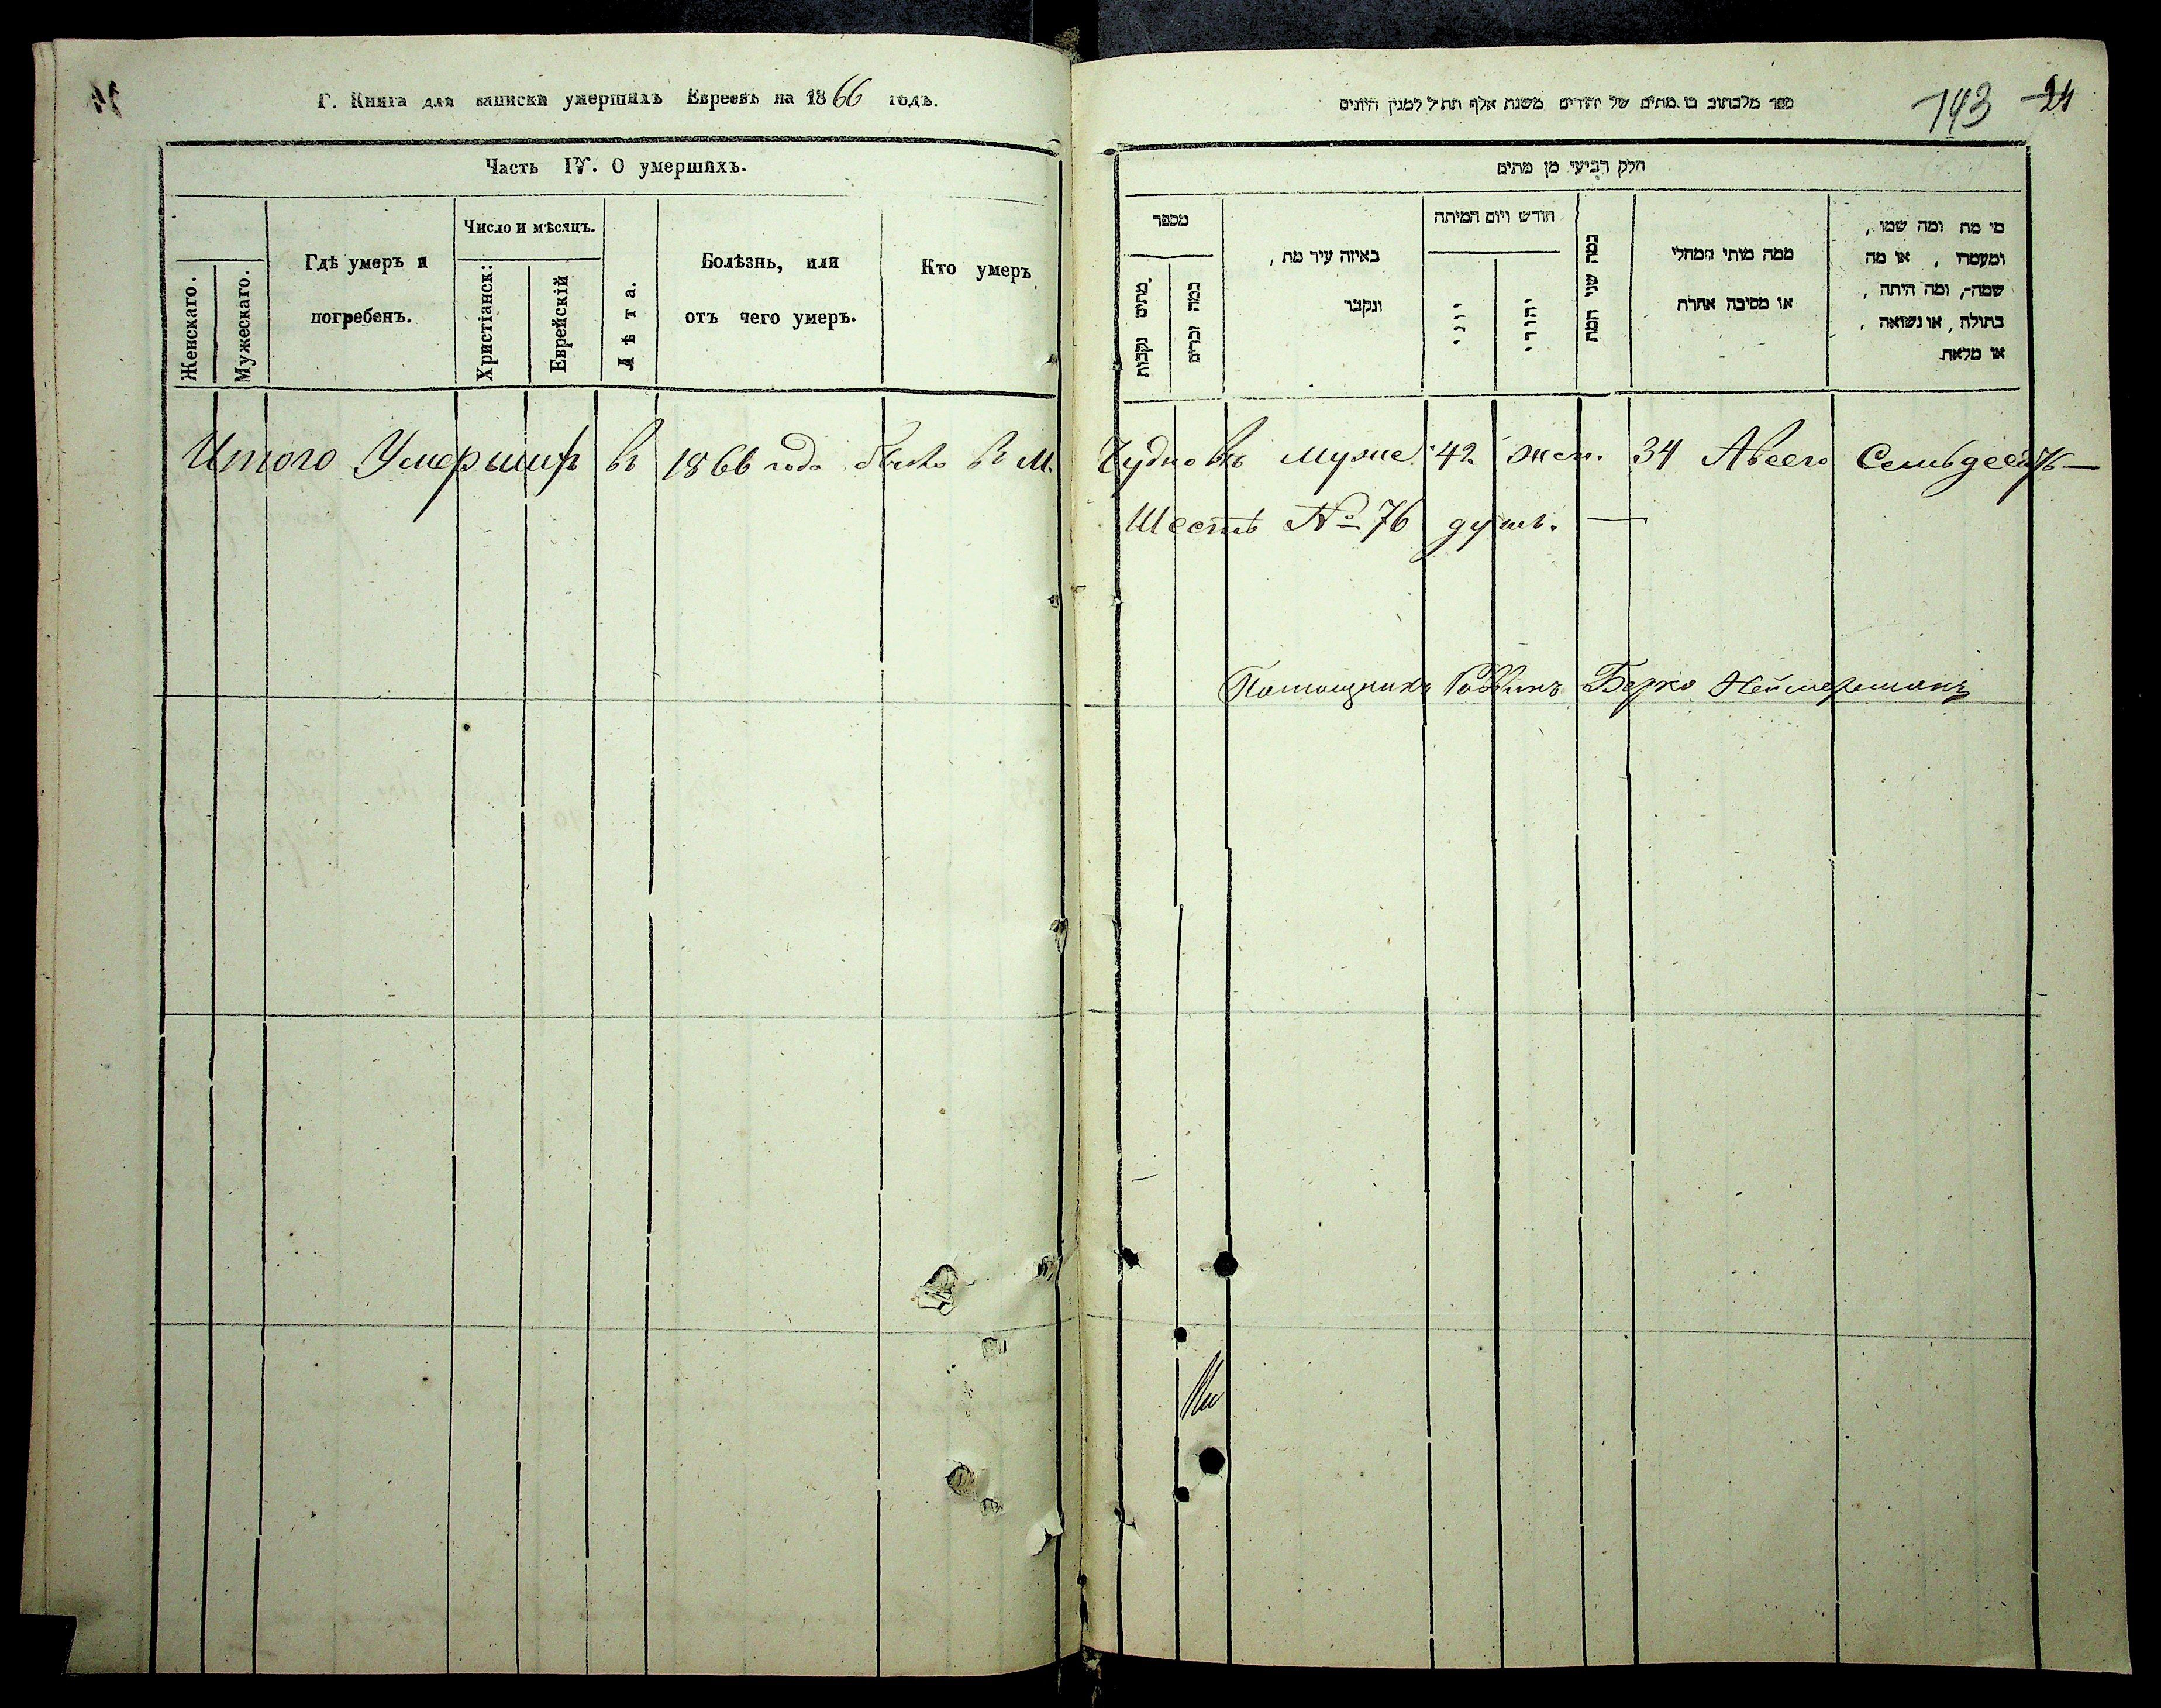 Г. Книга для записки умершихъ Евреевъ на 1866 годъ.
Часть IV. О умершихъ.
Женскаго.
Мужескаго.
Гдѣ умеръ и
погребенъ.
Число и мѣсяцъ.
Христіанск:
Еврейскій
Лѣта.
Болѣзнь, или
отъ чего умеръ.
Кто умеръ
ספר מלכתוב בו מתים של יהודים משנת אלף תת״ל למנין היונים
143 24
חלק רביעי מן מתים
מספר
מתים נקבות
כמה זכרים
באיזה עיר מת,
ונקבר
חודש ויום המיתה
יוני
יהודי
כמה שני המת
ממה מותי המחלי
או מסיבה אחרת
מי מת ומה שמו,
ומעמדו, או מה
שמה, ומה היתה,
בתולה, או נשואה,
או מלאת
Итого Умершихъ въ 1866 года было въ М. Чудновѣ муже. 42 жен. 34 Авсего Семьдесятъ
Шесть № 76 душъ. —
Помощникъ Раввинъ Берко Неймерманъ